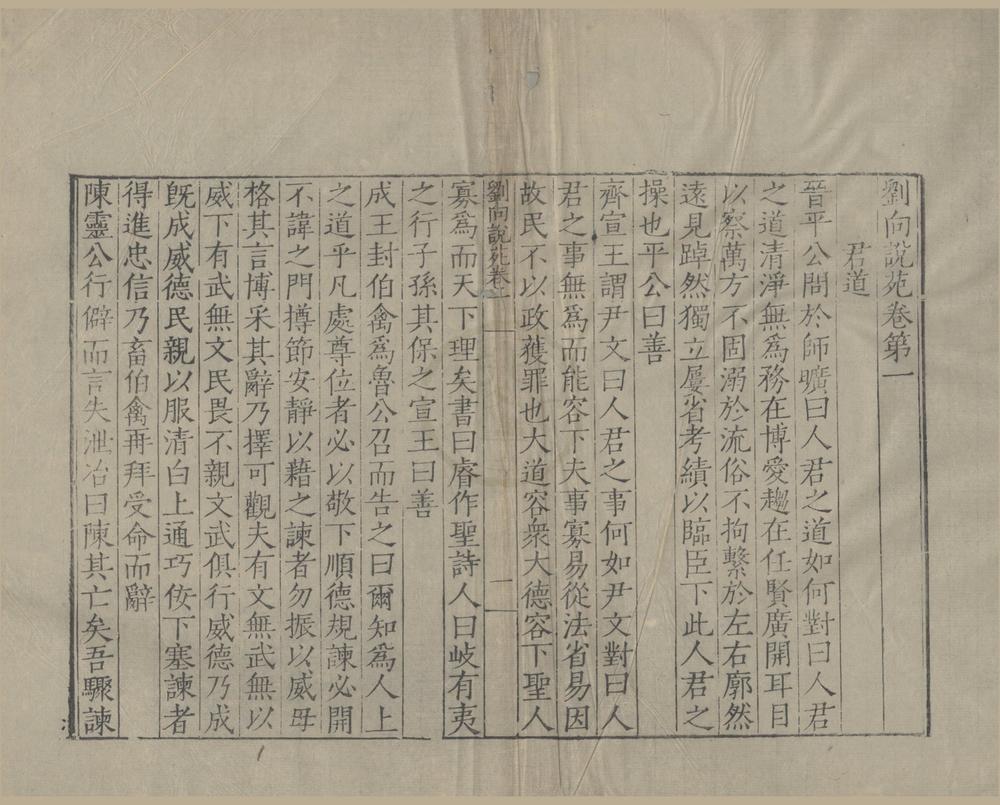 劉向說苑卷第一
君道
晉平公問於師曠曰人君之道如何對曰人君
之道清淨無爲務在博愛趨在任賢廣開耳目
以察萬方不固溺於流俗不拘繫於左右廓然
遠見踔然獨立屢省考績以臨臣下此人君之
操也平公曰善
齊宣王謂尹文曰人君之事何如尹文對曰人
君之事無爲而能容下夫事寡易從法省易因
故民不以政獲罪也大道容衆大德容下聖人
劉向說苑卷一
一
寡爲而天下理矣書曰睿作聖詩人曰岐有夷
之行子孫其保之宣王曰善
成王封伯禽爲魯公召而告之曰爾知爲人上
之道乎凡處尊位者必以敬下順德規諫必開
不諱之門撙節安靜以藉之諫者勿振以威毋
格其言博采其辭乃擇可觀夫有文無武無以
威下有武無文民畏不親文武俱行威德乃成
旣成威德民親以服清白上通巧佞下塞諫者
得進忠信乃畜伯禽再拜受命而辭
陳靈公行僻而言失泄冶曰陳其亡矣吾驟諫